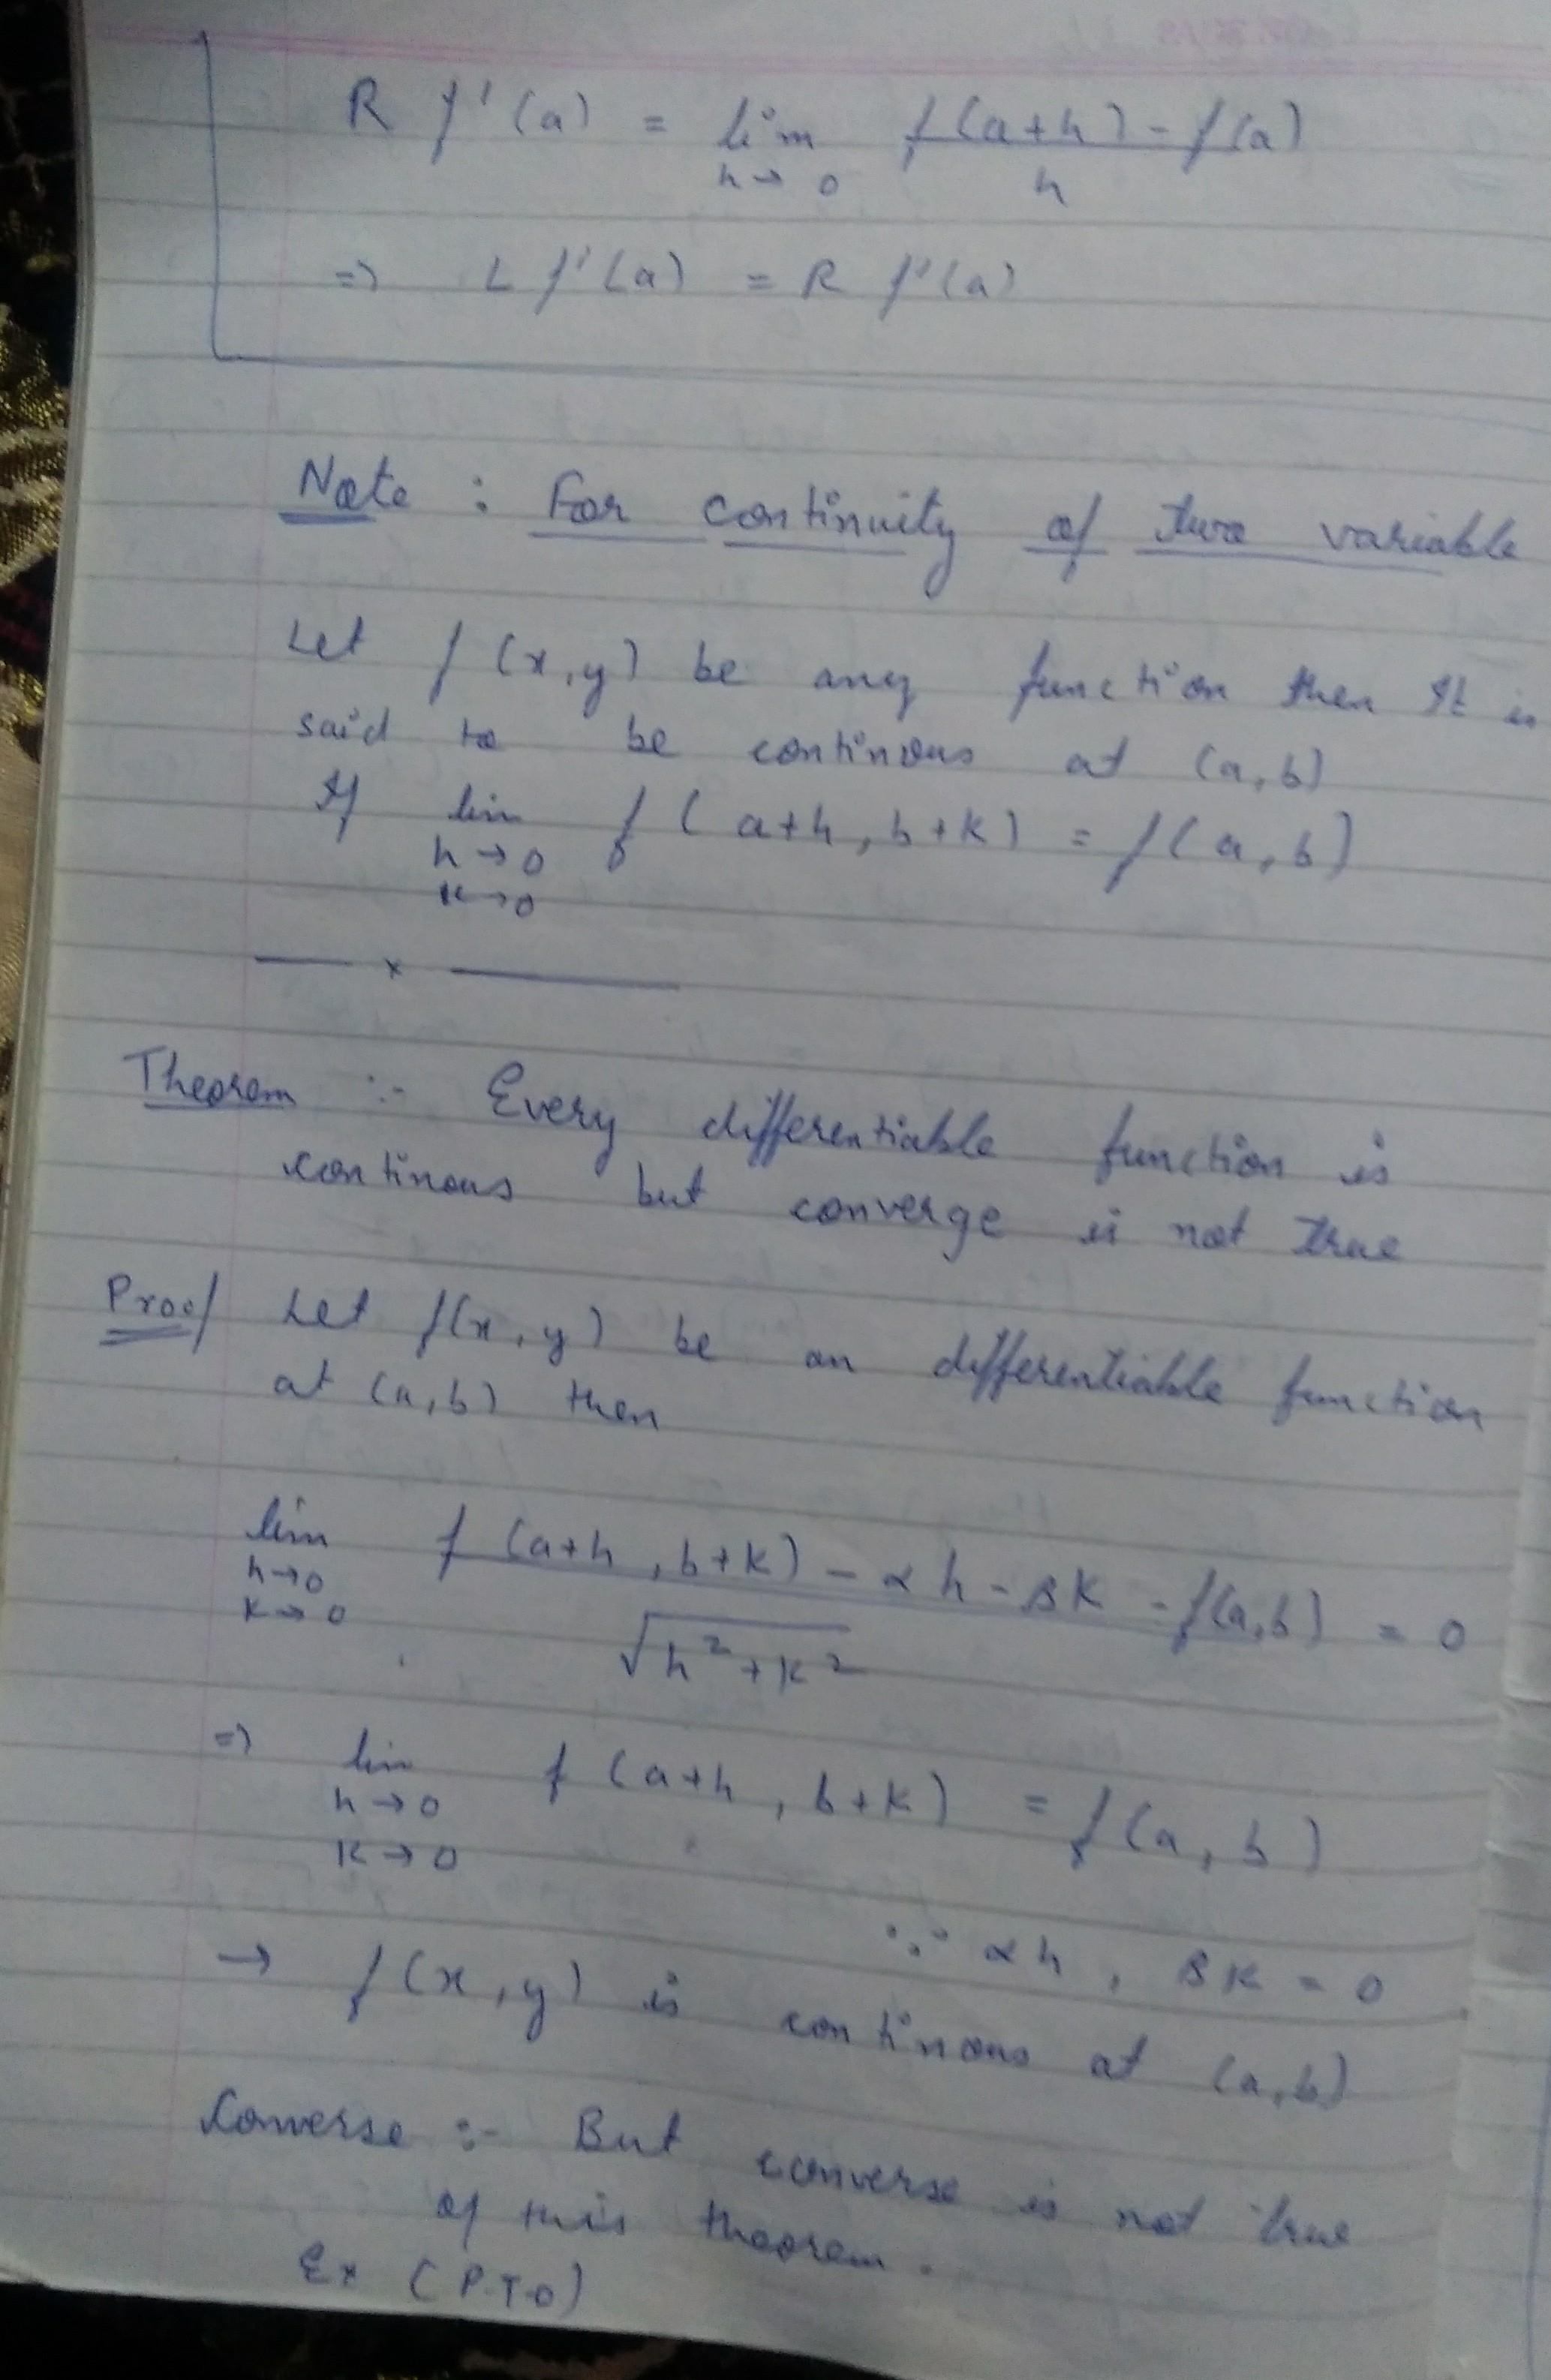 R f'(a) = lim f(a+h) - f(a)
h→0 h
=> L f'(a) = R f'(a)
Note : For continuity of two variable
Let f(x,y) be any function then It is
said to be continous at (a,b)
If lim f(a+h, b+k) = f(a,b)
h→0
k→0
— x —
Theorem :- Every differentiable function is
continous but converge is not true
Proof Let f(x,y) be an differentiable function
at (a,b) then
lim f(a+h, b+k) - αh - βk - f(a,b) = 0
h→0
k→0 √h²+k²
=> lim f(a+h, b+k) = f(a,b)
h→0
k→0
∵ αh, βk = 0
→ f(x,y) is continous at (a,b)
Converse :- But converse is not true
of this theorem.
Ex (P.T.O)